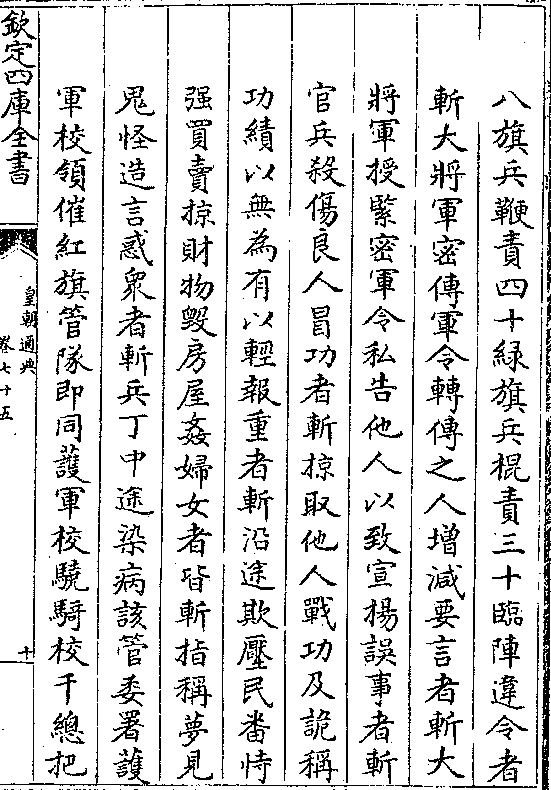 八旗兵鞭責四十緑旗兵棍責三十臨陣違令者
斬大將軍密傳軍令轉傳之人增減要言者斬大
將軍授緊密軍令私告他人以致宣揚誤事者斬
官兵殺傷良人冒功者斬掠取他人戰功及詭稱
功績以無為有以輕報重者斬沿途欺壓民畨恃
强買賣掠財物毁房屋姦婦女者皆斬指稱夢見
鬼怪造言惑衆者斬兵丁中途染病該管委署護
軍校領催紅旗管隊即同護軍校驍騎校千總把
欽定四庫全書
皇朝通典
卷七十五
十